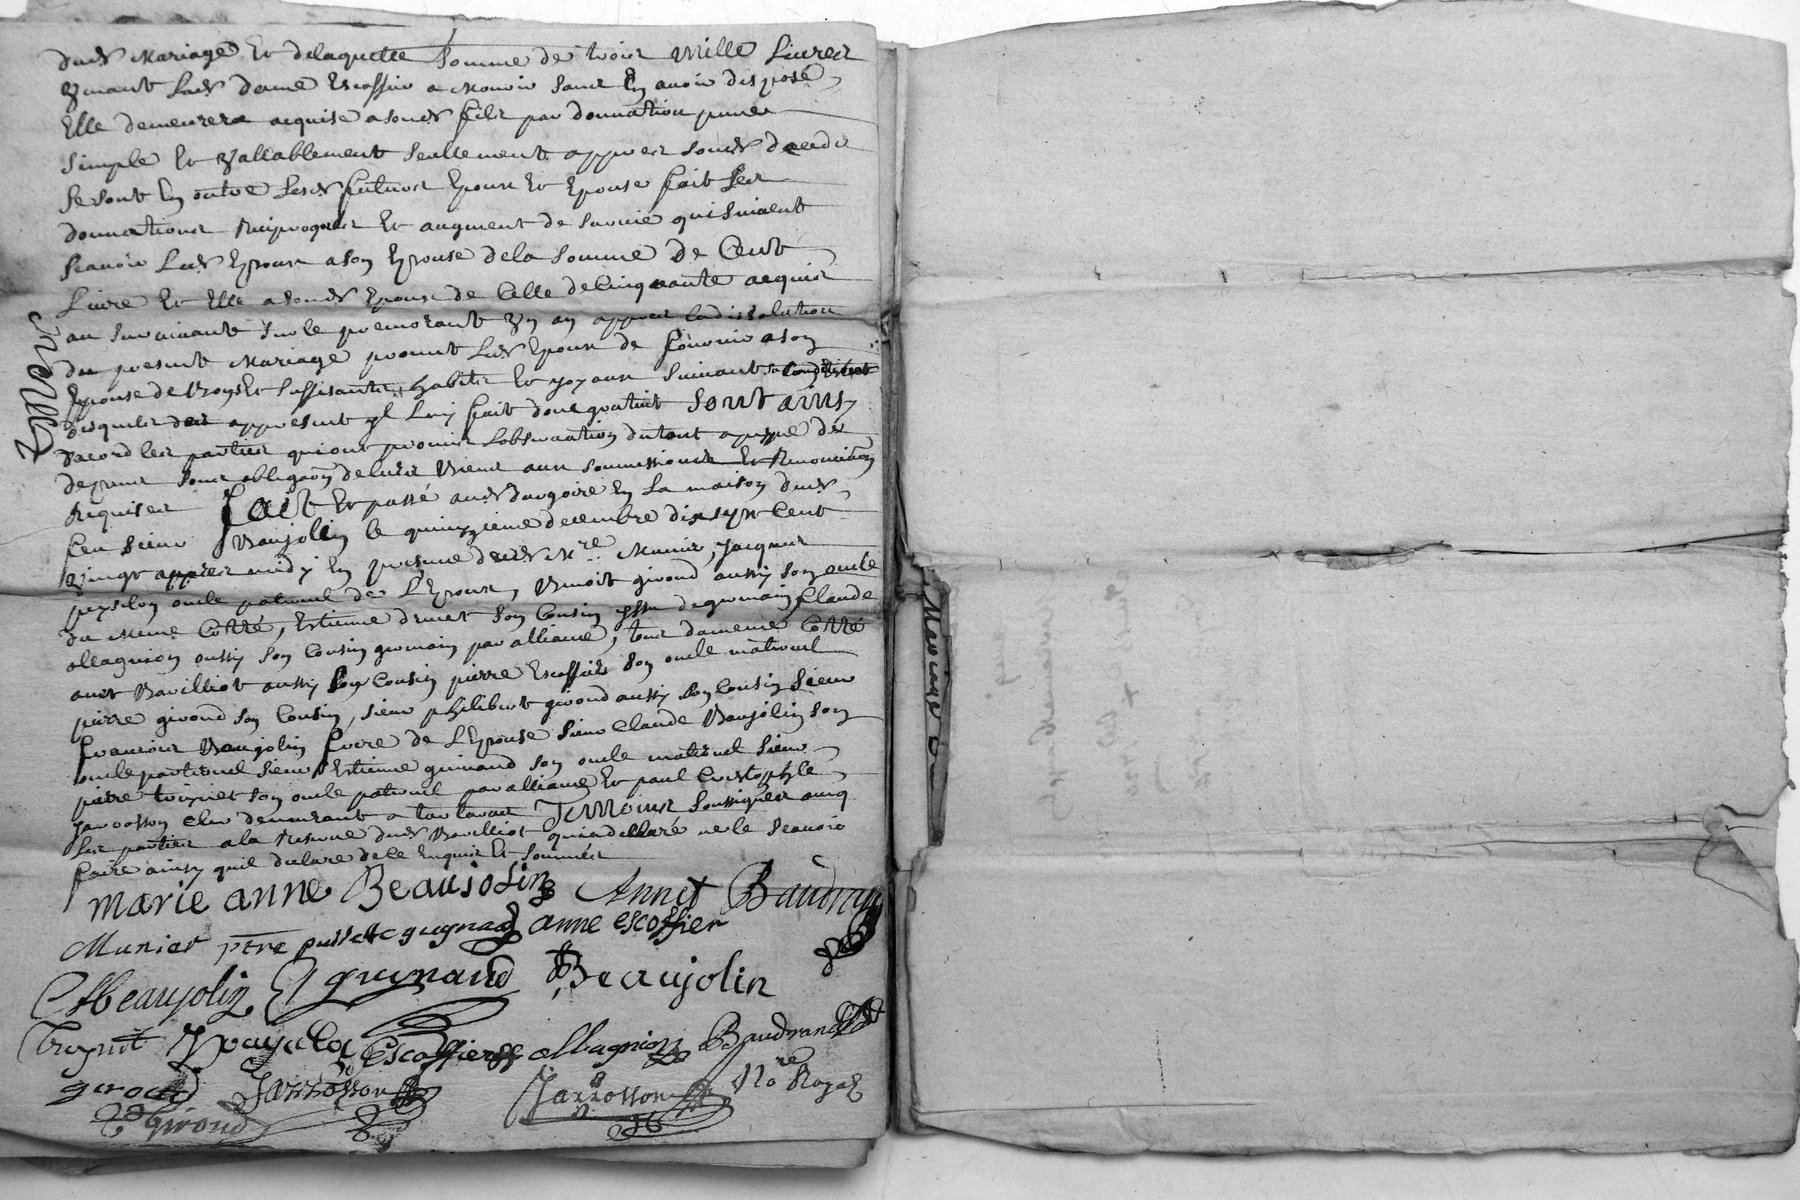 dud Mariage Et delaquelle Somme de trois Mille Livres
Venant Lad dame Escoffier a Mourir Sans En avoir disposé
Elle demeurera acquise a Sond fils par donnation pure
Simple Et Vallablement Seullement appres Sond deceds
Se Sont En outre Lesd futurs Epoux Et Epouse fait Les
donnations Reciproques Et augment de Survie qui Suivent
Scavoir Led Epoux a Son Epouse de la Somme de Cent
Livre Et Elle a Sond Epoux de Celle de Cinquante acquis
au Survivant Sur le premorant Un an appres la dissolution
du present Mariage promet Led Epoux de fournir a Son
Epouse de Bons Et Suffisants habits Et joyaux Suivant Sa Condition
desquels des appresent Il Luy fait don gratuit Sont ainsy
dacord les parties qui ont promis Lobservation du tout a peyne de
depens Sous obligaon de leurs Biens aux Soumissions Et Renonciaons
Requises fait Et passé aud dargoire En La maison dud
feu Sieur Beaujolin le quinzieme decembre dix Sept Cent
Vingt appres midy En presence dud Mre Munier, Jacques
peyselon oncle paternel de L'Epoux, Benoit giroud aussy Son oncle
du Meme Cotté, Estienne Son Cousin yssu de germain, Claude
allagnion aussy Son Cousin germain par alliance, tous du meme Cotté
Bavilliot aussy Son Cousin pierre Escoffier Son oncle maternel
pierre giroud Son Cousin, Sieur philibert giroud aussy Son Cousin Sieur
francois Beaujolin frere de L'Epouse Sieur Claude Beaujolin Son
oncle paternel Sieur Estienne guinand Son oncle maternel Sieur
pierre troynet Son oncle paternel par alliance Et paul Cristophle
Jarrosson Clerc demeurant a tartaras Temoins Soussignés avec
Les parties a la Reserve dud Bavilliot qui a declaré ne le Scavoir
faire ainsy quil declare de ce Enquis Et Sommés
marie anne Beaujolin Annet Baudran
Munier ptre anne escoffier
C Beaujolin E guinand F Beaujolin
troynet Escoffier allagnion Baudrand
giroud Jarrosson Jarrosson No.re Royal
P giroud
Mariage